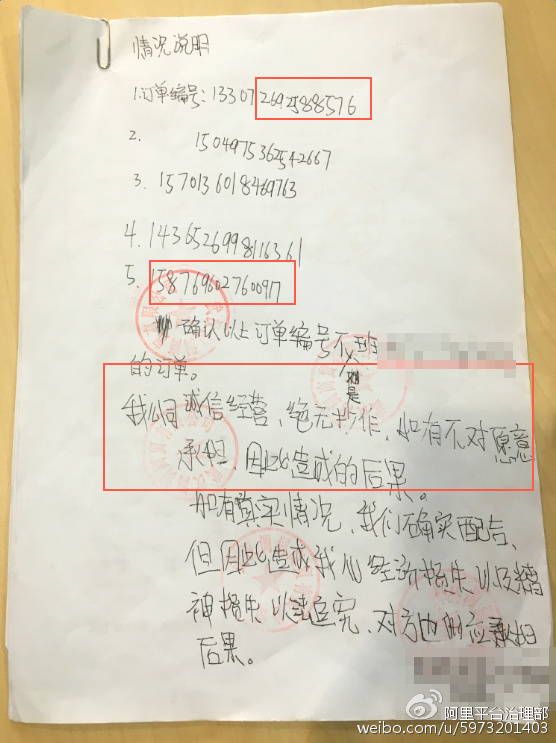 情况说明
1.订单编号:133072692588576
2. 1504975362542667
3. 1570136018469763
4. 1436526998116361
5. 158769602760917
确认以上订单编号不
是
的订单。
我公司诚信经营、绝无炸作,如有不对愿意
承担、因此造成的后果。
如有真实情况、我们确实配合、
但因此造成我人经济损失以及精
神损失以法追究、对方也倒应承担
后果。
阿里平台治理部
weibo.com/u/5973201403